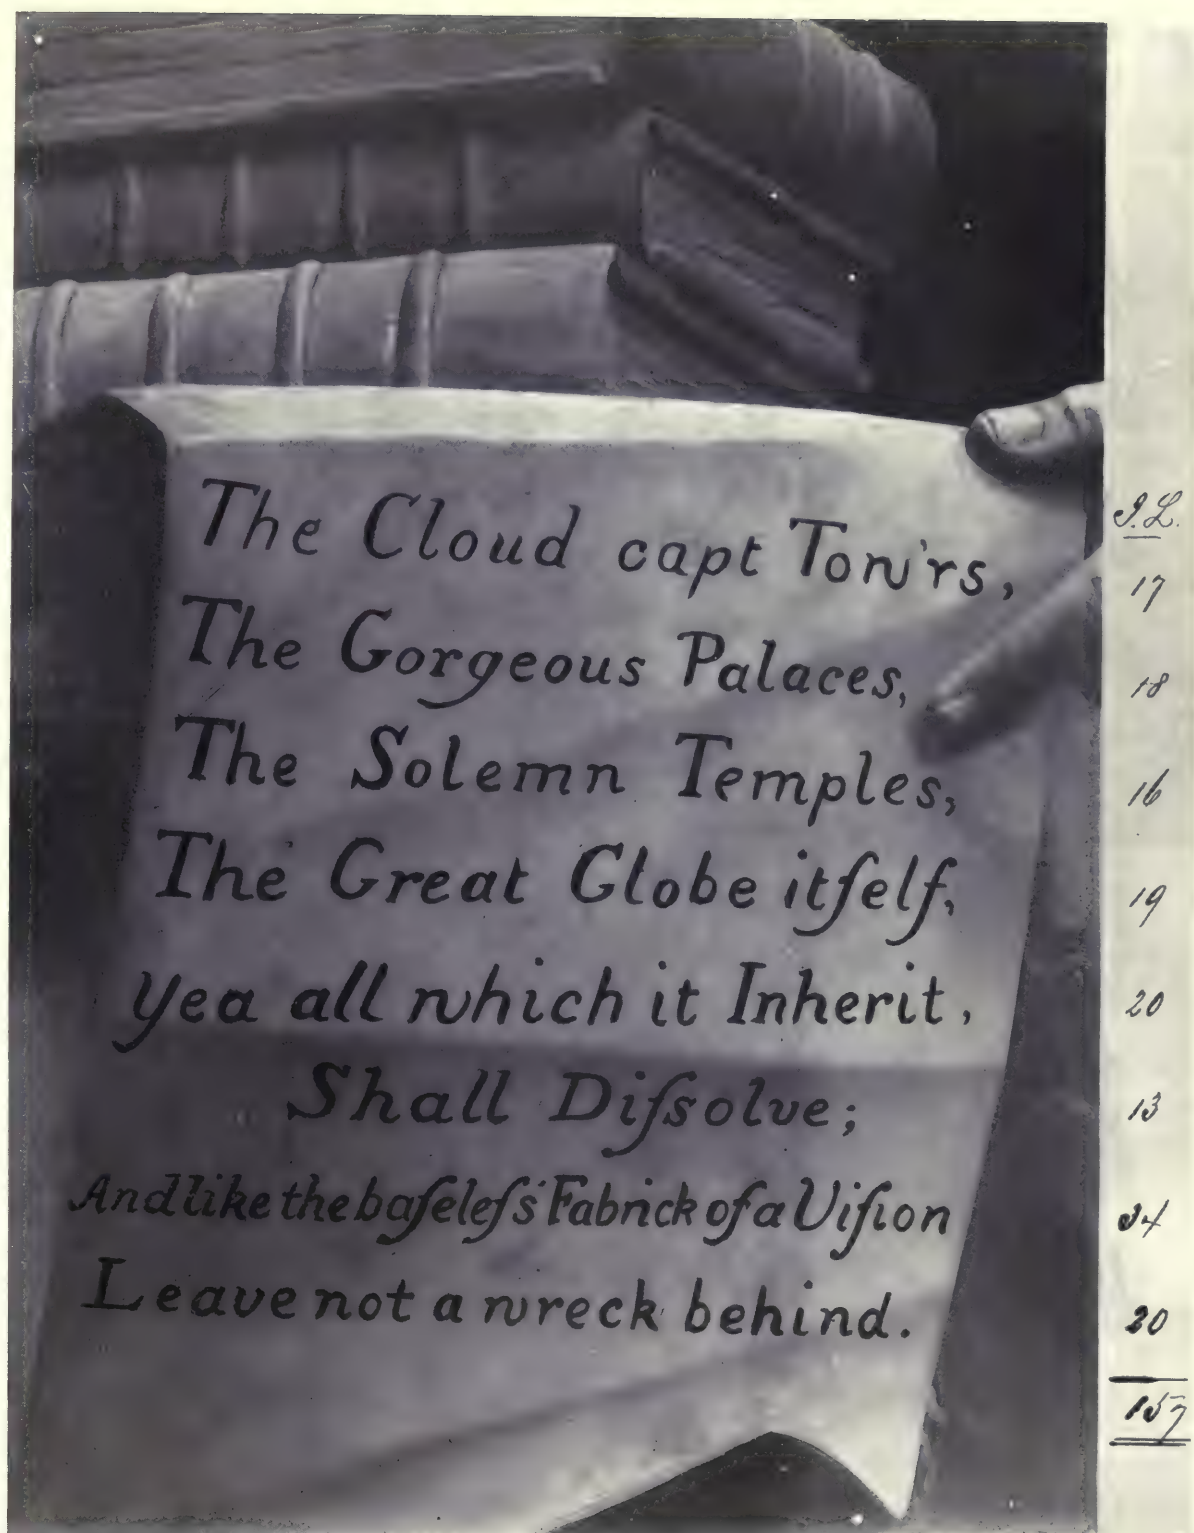 The Cloud capt Tow'rs,
The Gorgeous Palaces,
The Solemn Temples,
The Great Globe itſelf,
yea all which it Inherit,
Shall Diſsolve;
And like the baſeleſs Fabrick of a Viſion
Leave not a wreck behind.
I.L.
17
18
16
19
20
13
34
20
157